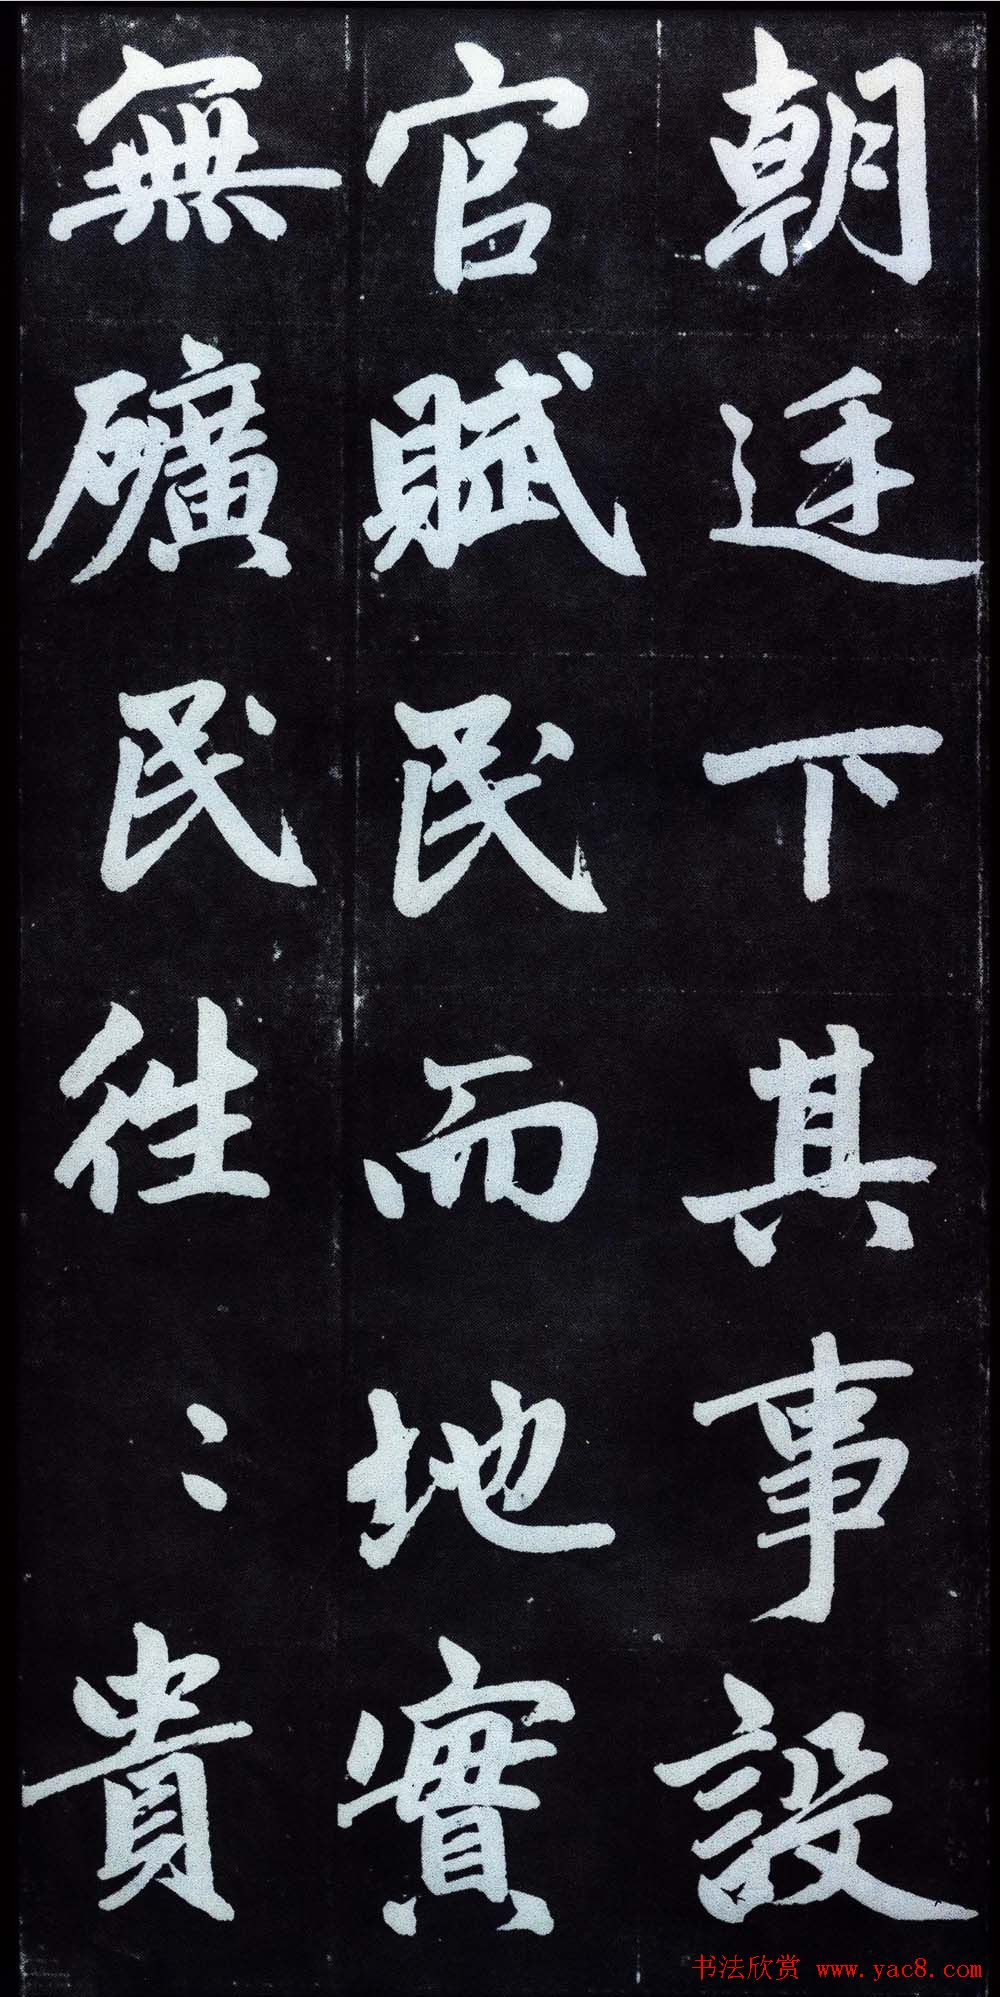 朝廷下其事設
官賦民而地實
無礦民往〻貴
书法欣赏 www.yac8.com